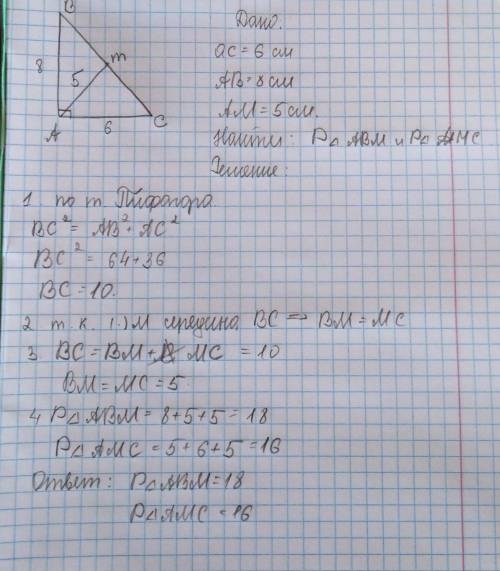 B
Дано:
ac = 6 см
8
5
m
AB = 8 см
AM = 5 см.
A
6
C
Найти: P△ ABM и P△ AMC
Решение:
1 по т Пифагора.
BC² = AB² + AC²
BC² = 64+36
BC = 10.
2 т.к. (·) M середина BC => BM = MC
3 BC = BM + MC = 10
BM = MC = 5
4 P△ ABM = 8+5+5 = 18
P△ AMC = 5+6+5 = 16
Ответ: P△ABM = 18
P△AMC = 16